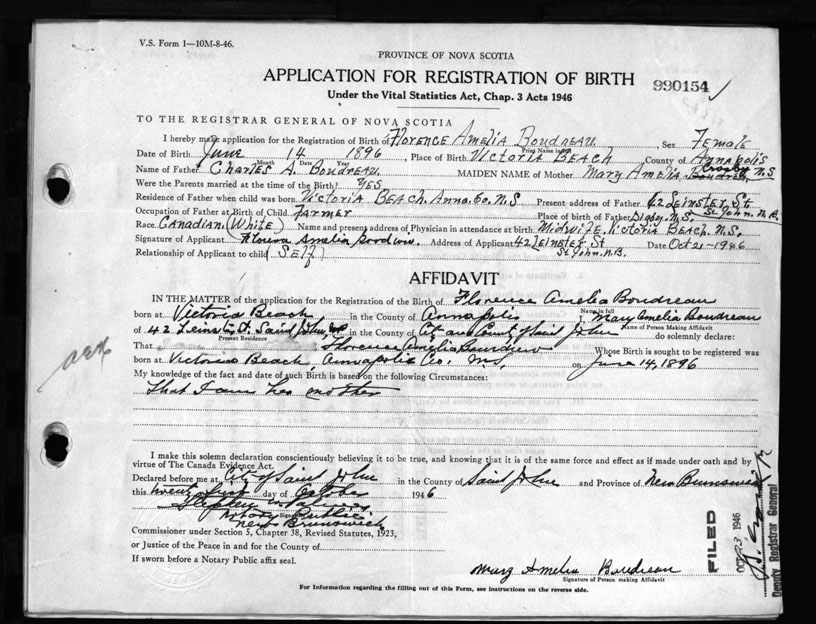 V.S. Form 1—10M-8-46.
PROVINCE OF NOVA SCOTIA
APPLICATION FOR REGISTRATION OF BIRTH
990154
Under the Vital Statistics Act, Chap. 3 Acts 1946
TO THE REGISTRAR GENERAL OF NOVA SCOTIA
I hereby make application for the Registration of Birth of Florence Amelia Boudreau. Sex Female
Print Name in full
Date of Birth June 14 1896, Place of Birth Victoria Beach County of Annapolis
Month Date Year
Name of Father Charles A. Boudreau. MAIDEN NAME of Mother Mary Amelia Boudreau N.S
Were the Parents married at the time of the Birth? Yes
Residence of Father when child was born Victoria Beach. Anna. Co. N.S Present address of Father 42 Leinster St
St John. N.B.
Occupation of Father at Birth of Child Farmer Place of birth of Father Digby. N.S.
Race Canadian (White) Name and present address of Physician in attendance at birth Midwife. Victoria Beach. N.S.
Signature of Applicant Amelia Address of Applicant 42 Leinster St Date Oct 21-1946
St John. N.B.
Relationship of Applicant to child (Self)
AFFIDAVIT
IN THE MATTER of the application for the Registration of the Birth of Florence Amelia Boudreau
Name in full
born at Victoria Beach in the County of Annapolis I, Mary Amelia Boudreau
Name of Person Making Affidavit
of 42 Leinster St. Saint John, in the County of City and County of Saint John do solemnly declare:
Present Residence
That Florence Amelia Boudreau Whose Birth is sought to be registered was
born at Victoria Beach, Annapolis Co. on June 14, 1896
My knowledge of the fact and date of such Birth is based on the following Circumstances:
that I am her mother
I make this solemn declaration conscientiously believing it to be true, and knowing that it is of the same force and effect as if made under oath and by
virtue of The Canada Evidence Act.
Declared before me at City of Saint John in the County of Saint John and Province of New Brunswick
this twenty first day of October 1946
Notary Public
New Brunswick
Commissioner under Section 5, Chapter 38, Revised Statutes, 1923,
or Justice of the Peace in and for the County of
If sworn before a Notary Public affix seal.
Mary Amelia Boudreau
Signature of Person making Affidavit
For Information regarding the filling out of this Form, see instructions on the reverse side.
FILED
1946
Deputy Registrar General